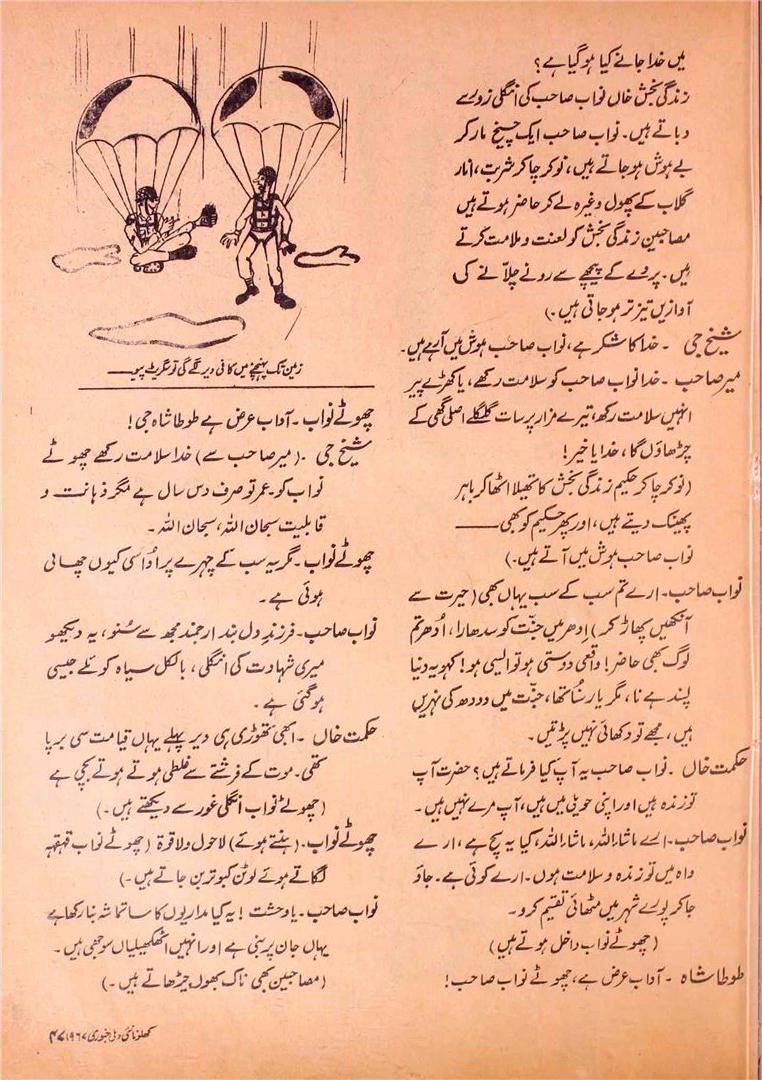 میں خدا جانے کیا ہو گیا ہے؟
زندگی بخش خاں نواب صاحب کی انگلی زور سے
دباتے ہیں۔ نواب صاحب ایک چیخ مار کر
بے ہوش ہو جاتے ہیں، نوکر چاکر شربت، انار
گلاب کے پھول وغیرہ لے کر حاضر ہوتے ہیں
مصاحبین زندگی بخش کو لعنت و ملامت کرتے
ہیں۔ پردے کے پیچھے سے رونے چلّانے کی
آوازیں تیز تر ہو جاتی ہیں۔)
شیخ جی ۔ خدا کا شکر ہے، نواب صاحب ہوش میں آرہے ہیں۔
میر صاحب ۔ خدا نواب صاحب کو سلامت رکھے، یا کھڑے پیر
انہیں سلامت رکھ، تیرے مزار پر سات گلگلے اصلی گھی کے
چڑھاؤں گا، خدایا خیر!
(نوکر چاکر حکیم زندگی بخش کا تھیلا اٹھا کر باہر
پھینک دیتے ہیں، اور پھر حکیم کو بھی ـــــ
نواب صاحب ہوش میں آتے ہیں۔)
نواب صاحب۔ ارے تم سب کے سب یہاں بھی (حیرت سے
آنکھیں پھاڑ کر) اِدھر میں جنّت کو سدھارا، اُدھر تم
لوگ بھی حاضر! واقعی دوستی ہو تو ایسی ہو! کہو یہ دنیا
پسند ہے نا، مگر یار سُنا تھا، جنّت میں دودھ کی نہریں
ہیں، مجھے تو دکھائی نہیں پڑتیں۔
حکمت خاں ۔ نواب صاحب یہ آپ کیا فرماتے ہیں؟ حضرت آپ
تو زندہ ہیں اور اپنی حویلی میں ہیں، آپ مرے نہیں ہیں۔
نواب صاحب۔ ارے ماشاء اللہ، ماشاء اللہ، کیا یہ سچ ہے، ارے
واہ میں تو زندہ و سلامت ہوں۔ ارے کوئی ہے۔ جاؤ
جا کر پورے شہر میں مٹھائی تقسیم کرو۔
(چھوٹے نواب داخل ہوتے ہیں)
طوطا شاہ ۔ آداب عرض ہے، چھوٹے نواب صاحب!
زمین تک پہنچنے میں کافی دیر لگے گی تو سگریٹ پیو ـــــ
چھوٹے نواب ۔ آداب عرض ہے طوطا شاہ جی!
شیخ جی ۔ (میر صاحب سے) خدا سلامت رکھے چھوٹے
نواب کو۔ عمر تو صرف دس سال ہے مگر ذہانت و
قابلیت سبحان اللہ، سبحان اللہ۔
چھوٹے نواب ۔ مگر یہ سب کے چہرے پر اُداسی کیوں چھائی
ہوئی ہے۔
نواب صاحب۔ فرزندِ دل بند ارجمند مجھ سے سُنو، یہ دیکھو
میری شہادت کی انگلی، بالکل سیاہ کوئلے جیسی
ہو گئی ہے۔
حکمت خاں ۔ ابھی تھوڑی ہی دیر پہلے یہاں قیامت سی برپا
تھی۔ موت کے فرشتے سے غلطی ہوتے ہوتے بچی ہے
(چھوٹے نواب انگلی غور سے دیکھتے ہیں۔)
چھوٹے نواب۔ (ہنستے ہوئے) لاحول ولا قوۃ (چھوٹے نواب قہقہہ
لگاتے ہوئے لوٹن کبوتر بن جاتے ہیں۔)
نواب صاحب۔ یا وحشت! یہ کیا مداریوں کا سا تماشہ بنا رکھا ہے
یہاں جان پر بنی ہے اور انہیں اٹھکھیلیاں سوجھی ہیں۔
(مصاحبین بھی ناک بھوں چڑھاتے ہیں۔)
کھلونا نئی دہلی جنوری ۱۹۶۷ ۴۷